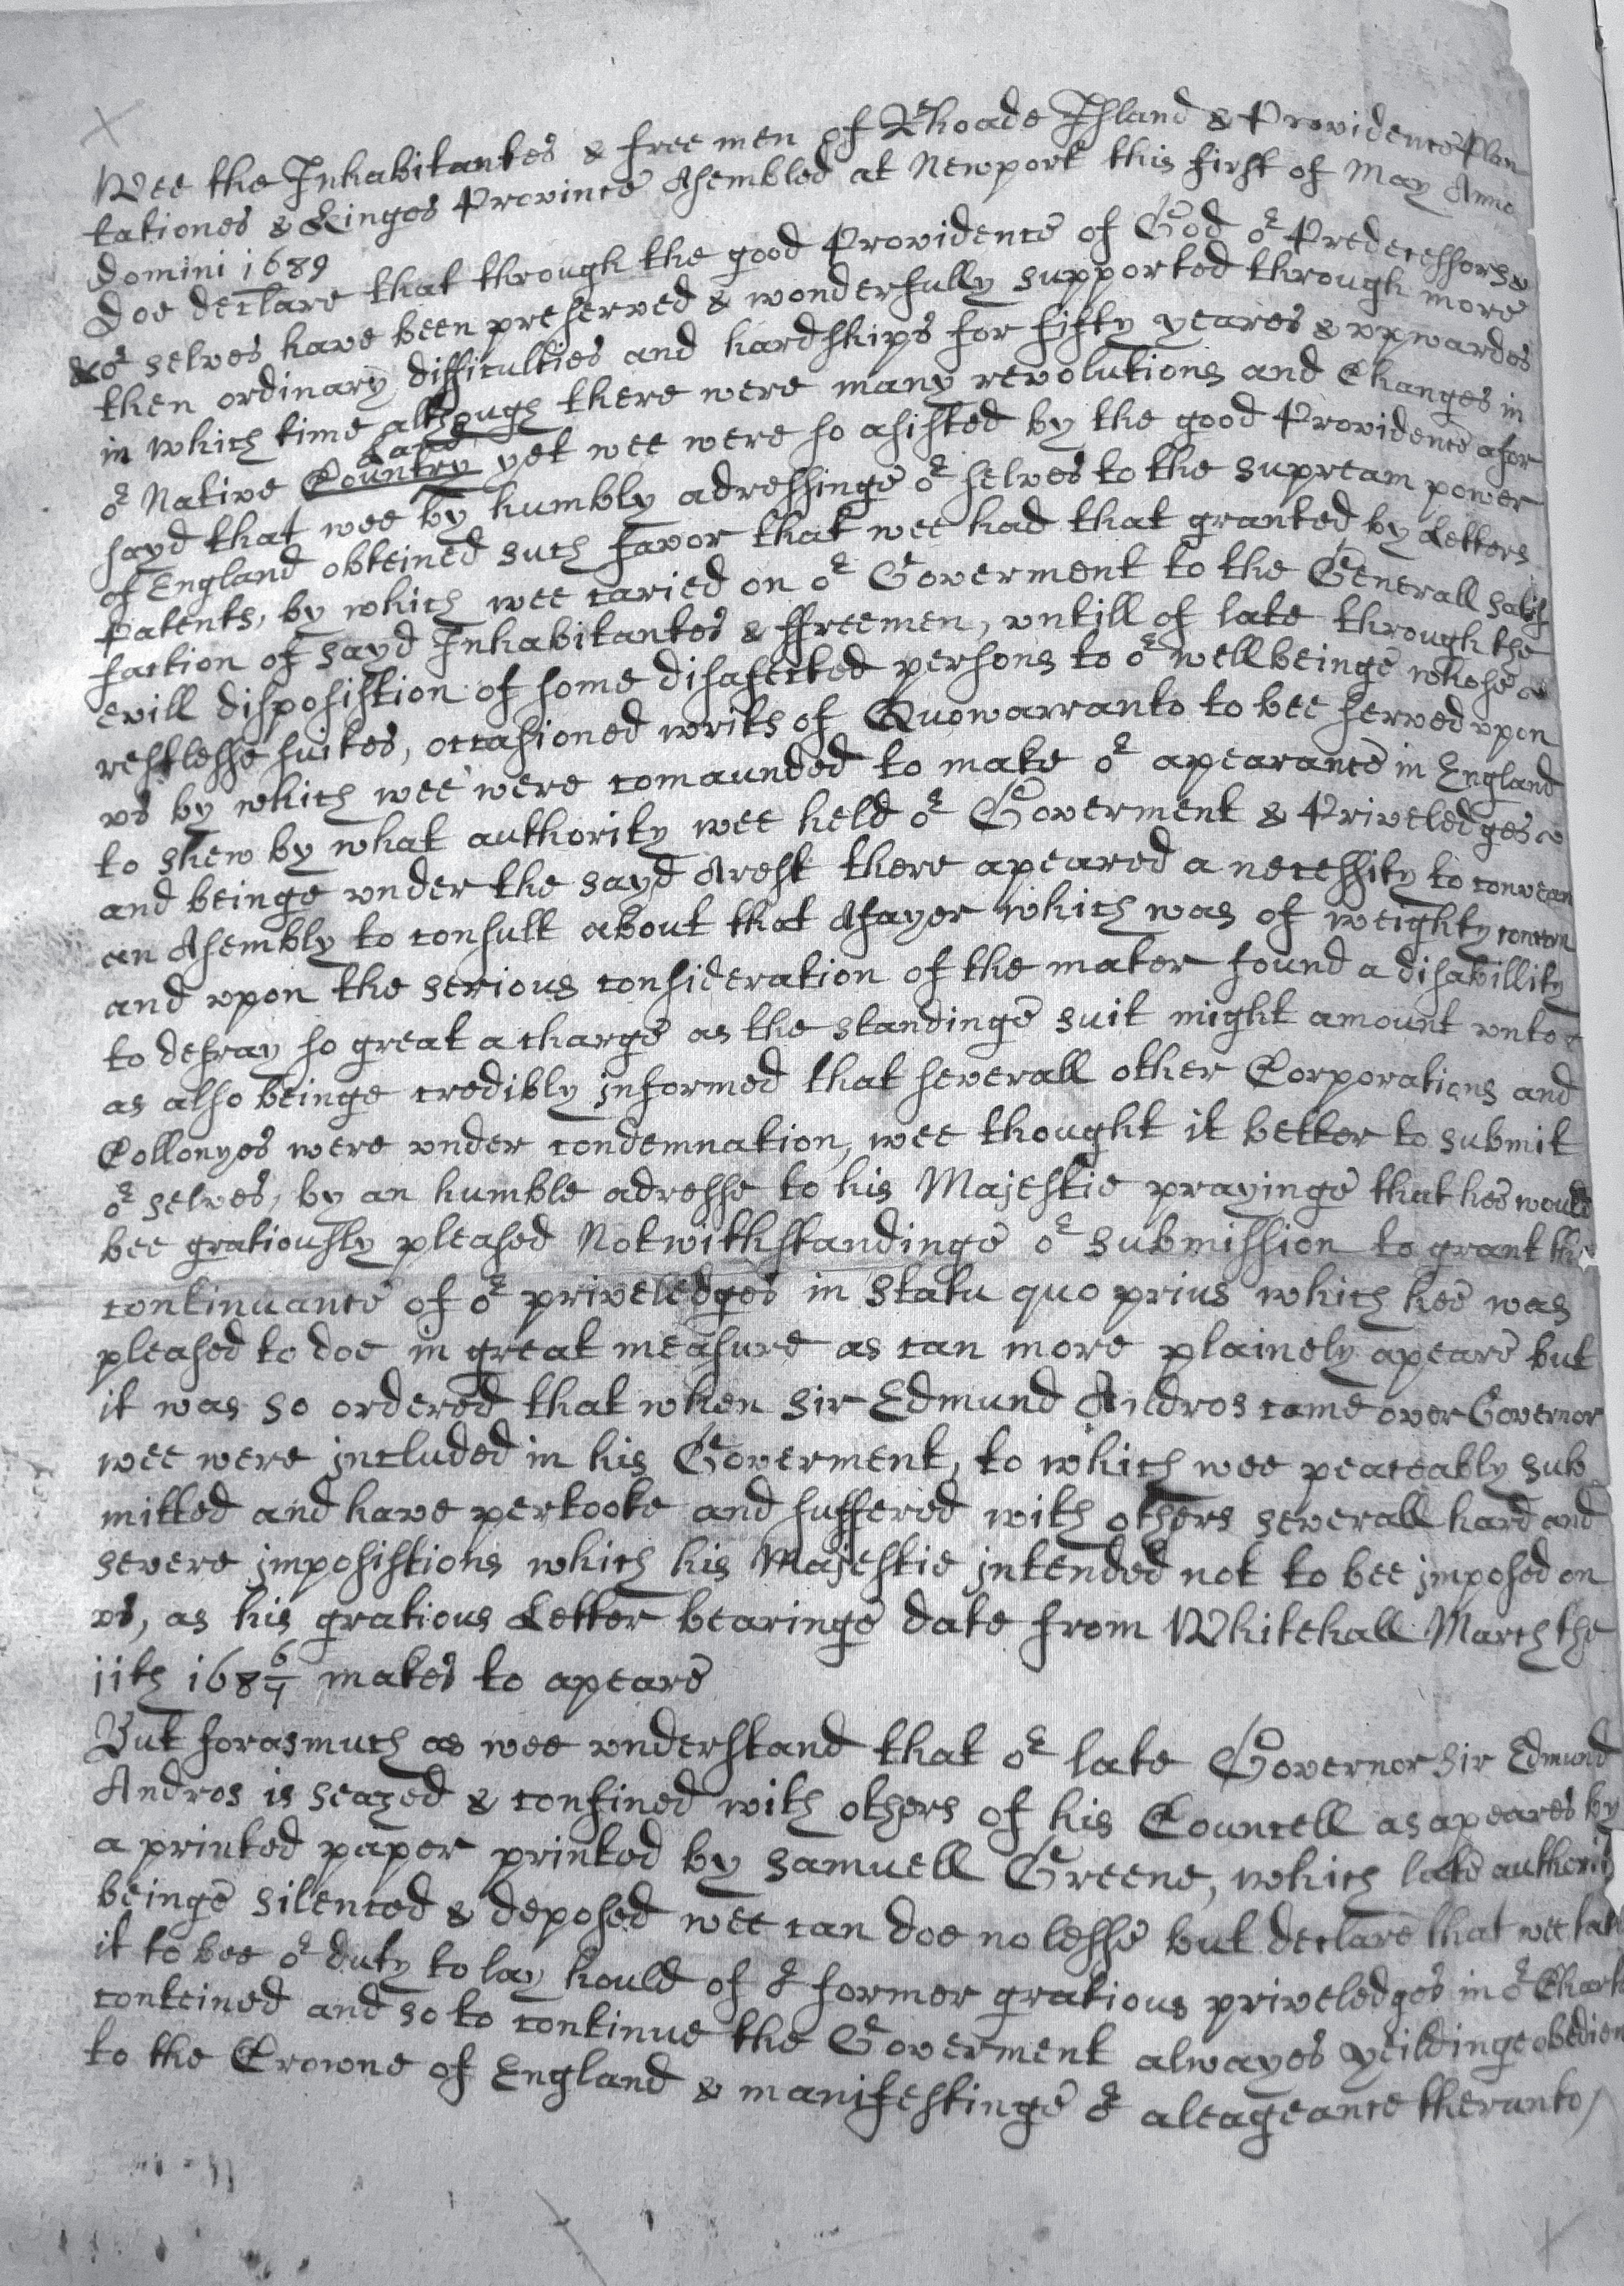 Wee the Inhabitantes & free men of Rhoade Island & Providence Plan
tationes & Kinges Province Asembled at Newport this first of May Anno
Domini 1689
Doe declare that through the good Providence of God or Predecessors
& or selves have been preserved & wonderfully supported through more
then ordinary difficulties and hardships for fifty yeares & upwardes
in which time although there were many revolutions and Changes in
or Native Country Land yet wee were so asisted by the good Providence afor
sayd that wee by humbly adressinge or selves to the supream power
of England obteined such favor that wee had that granted by Letters
Patents, by which wee caried on or Goverment to the Generall satis
faction of sayd Inhabitantes & ffreemen, untill of late through the
evill disposistion of some disafected persons to or wellbeinge whose
restlesse suites, occasioned writs of Quowarranto to bee served upon
us by which wee were comaunded to make or apearance in England
to shew by what authority wee held or Goverment & Priveledges
and beinge under the sayd Arest there apeared a necessity to convean
an Asembly to consult about that Afayer which was of weighty concern
and upon the serious consideration of the mater found a disabillity
to defray so great a charge as the standinge suit might amount unto
as also beinge credibly informed that severall other Corporations and
Collonyes were under condemnation, wee thought it better to submit
or selves, by an humble adresse to his Majestie prayinge that hee would
bee gratiously pleased Notwithstandinge or submission to grant the
continuance of or priveledges in statu quo prius which hee was
pleased to doe in great measure as can more plainely apeare but
it was so ordered that when Sir Edmund Andros came over Governor
wee were included in his Goverment, to which wee peaceably sub
mitted and have pertooke and suffered with others severall hard and
severe imposistions which his Majestie intended not to bee imposed on
us, as his gratious Letter bearinge date from Whitehall March the
11th 168 6/7 makes to apeare
But forasmuch as wee understand that or late Governor Sir Edmund
Andros is seazed & confined with others of his Councell as apeares by
a printed paper printed by Samuell Greene, which late authority
beinge silenced & deposed wee can doe no lesse but declare that wee take
it to bee or duty to lay hould of or former gratious priveledges in or Chart
conteined and so to continue the Goverment alwayes yeildinge obedien
to the Crowne of England & manifestinge or aleageance therunto